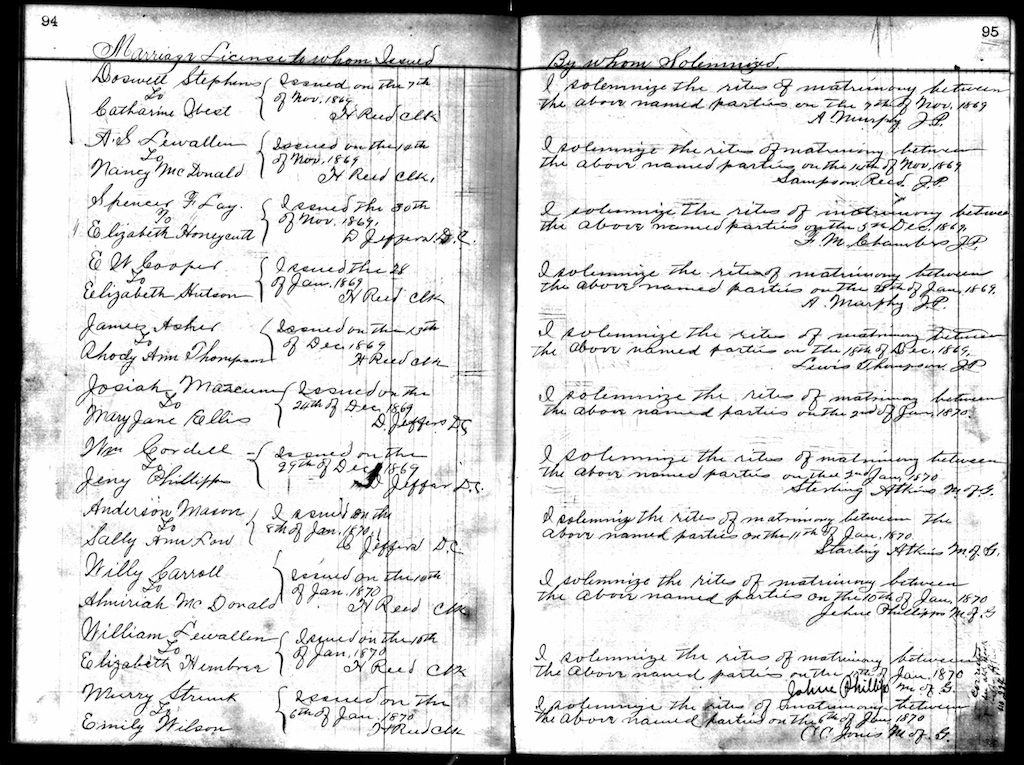 94
Marriage License to whom Issued
Doswell Stephens
To
Catharine West
Issued on the 7th
of Nov. 1869
H Reed Clk
A. S Lewallen
To
Nancy McDonald
Issued on the 14th
of Nov. 1869
H Reed Clk.
Spencer F. Lay.
To
Elizabeth Honeycutt
Issued the 30th
of Nov. 1869.
D Jeffers D. C.
E W Cooper
To
Elizabeth Hutson
Issued the 28
of Jan. 1869
H Reed Clk
James Asher
To
Rhody Ann Thompson
Issued on the 15th
of Dec. 1869
H Reed Clk
Josiah Marcum
To
Mary Jane Ellis
Issued on the
24th of Dec. 1869
D. Jeffers D C
Wm Cordell
To
Jeny Phillipps
Issued on the
29th of Dec 1869
D Jeffers D. C.
Anderson Mason
To
Sally Ann
I issued on the
8th of Jan. 1870,
Jeffers D. C
Willy Carroll
To
McDonald
Issued on the 10th
of Jan. 1870
H Reed Clk
William Lewallen
To
Elizabeth Hembree
Issued on the 10th
of Jan. 1870
H Reed Clk
Murry Strunk
To
Emily Wilson
Issued on the
6th of Jan. 1870
H Reed Clk
95
By whom Solemnized.
I solemnize the rites of matrimony between
the above named parties on the 7th of Nov. 1869
A Murphy J. P.
I solemnize the rites of matrimony between
the above named parties on the 14th of Nov. 1869
Sampson Reed J. P.
I solemnize the rites of matrimony between
the above named parties on the 5th Dec. 1869.
F. M. Chambers J. P.
I solemnize the rites of matrimony between
the above named parties on the 28th of Jan. 1869.
A. Murphy J. P.
I solemnize the rites of matrimony between
the above named parties on the 18th of Dec. 1869,
Lewis Thompson J P
I solemnize the rites of matrimony between
the above named parties on the 2nd of Jan. 1870.
I solemnize the rites of matrimony between
the above named parties on the 2nd of Jan, 1870
Sterling Atkins M. of G.
I solemnize the rites of matrimony between the
above named parties on the 11th of Jan, 1870.
Starling Atkins M. of G.
I solemnize the rites of matrimony between
the above named parties on the 10th of Jan, 1870
Jehue Phillipps M. of G
I solemnize the rites of matrimony between
the above named parties on the of Jan, 1870
Phillips M. of G.
I solemnize the rites of matrimony between
the above named parties on the 6th of Jan, 1870
C C Jones M. of. G.